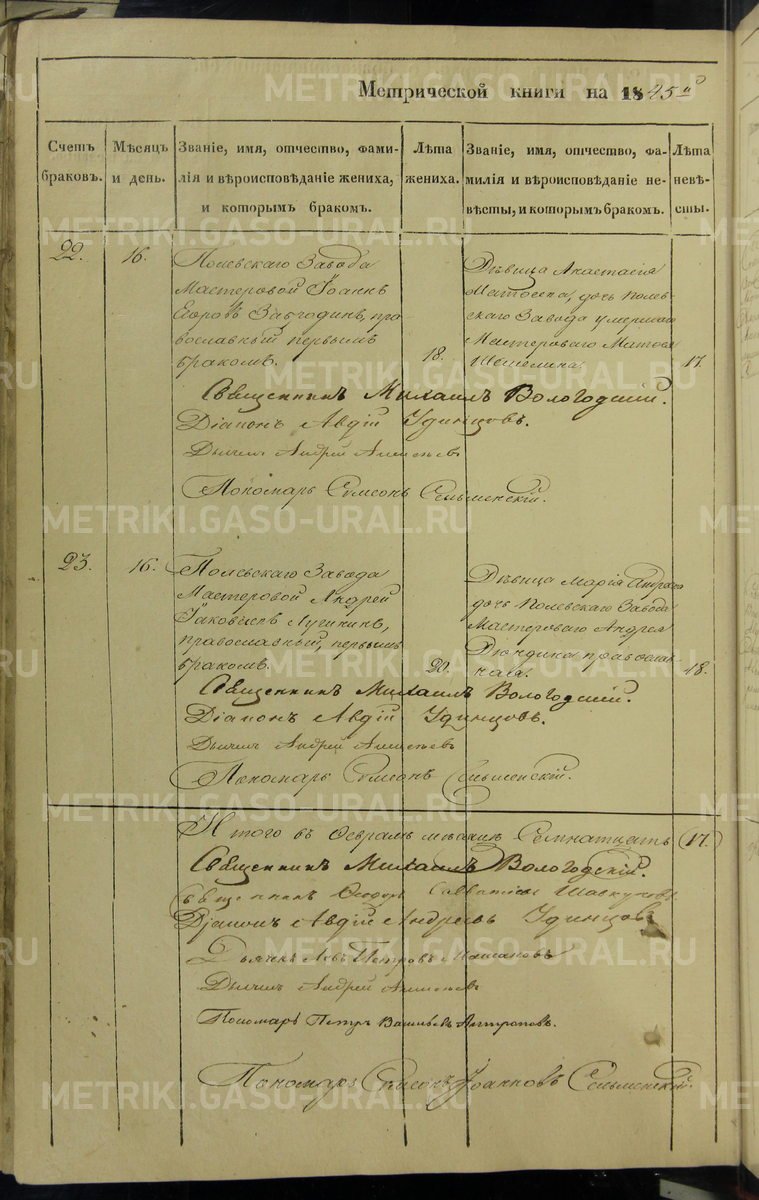 Метрической книги на 1845й
Счетъ браковъ.
Мѣсяцъ и день.
Званіе, имя, отчество, фами-
лія и вѣроисповѣданіе жениха,
и которымъ бракомъ.
Лѣта жениха.
Званіе, имя, отчество, фа-
милія и вѣроисповѣданіе не-
вѣсты, и которымъ бракомъ.
Лѣта невѣ-
сты.
22.
16.
Полевскаго Завода
Мастеровой Іоаннъ
Егоровъ пра-
вославный первымъ
бракомъ.
18.
Дѣвица Анастасія
Матвеева, дочь Полев-
скаго Завода умершаго
Мастероваго Матвея
17.
Священникъ Михаилъ Вологодскій.
Діаконъ Авдій Удинцовъ.
Дьячекъ Андрей
Пономарь Симеонъ Сельменскій.
23.
16.
Полевскаго Завода
Мастеровой Андрей
Іаковлевъ Лушинъ,
православный, первымъ
бракомъ.
20.
Дѣвица Марія Андреева
дочь Полевскаго Завода
Мастероваго Андрея
православ-
ная.
18.
Священникъ Михаилъ Вологодскій.
Діаконъ Авдій Удинцовъ.
Дьячекъ Андрей
Пономарь Симеонъ Сельменскій.
Итого въ Февралѣ месяцѣ Семнатцать (17.)
Священникъ Михаилъ Вологодскій.
Священникъ Феодоръ
Діаконъ Авдій Андреевъ Удинцовъ
Дьячекъ Левъ Петровъ
Дьячекъ Андрей
Пономарь Петръ Васильевъ Антроповъ.
Пономарь Симеонъ Іоанновъ Сельменскій.
METRIKI.GASO-URAL.RU